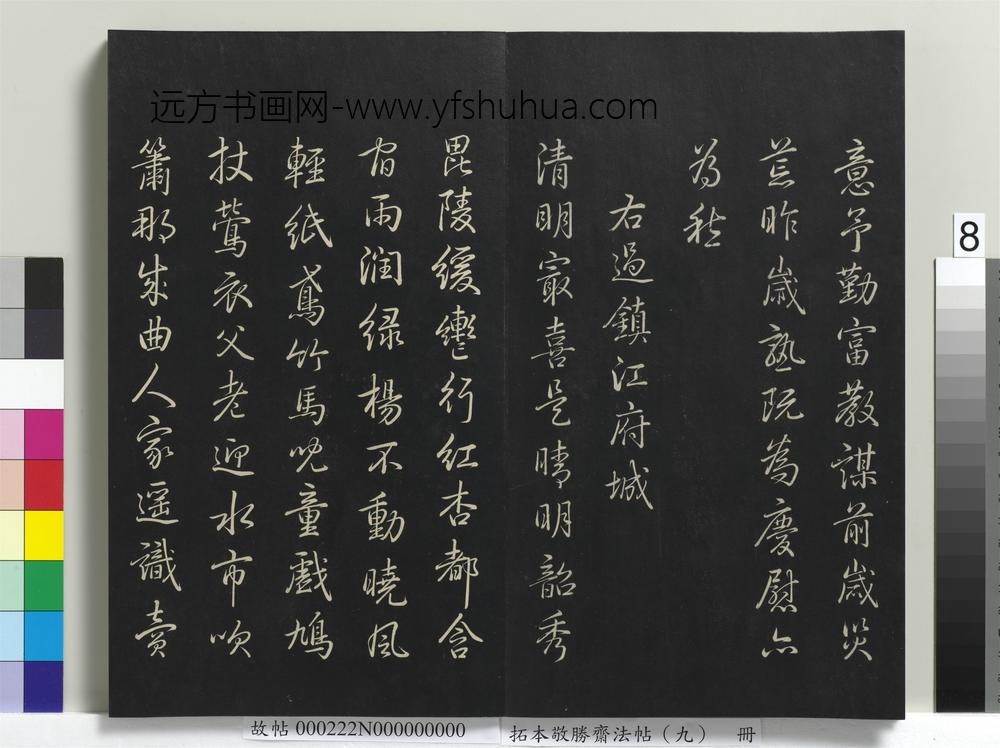 远方书画网-www.yfshuhua.com
意予勤富教謀前歲災
荒昨歲熟既為慶慰亦
為愁
右過鎮江府城
清明最喜是晴明韶秀
毘陵緩轡行紅杏都含
宿雨潤綠楊不動曉風
輕紙鳶竹馬兒童戲鳩
杖鶯衣父老迎水市吹
簫那成曲人家遙識賣
8
故帖 000222N000000000
拓本敬勝齋法帖（九） 冊